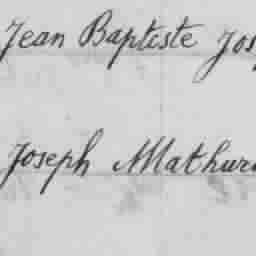 Jean Baptiste Jos
Joseph Mathur